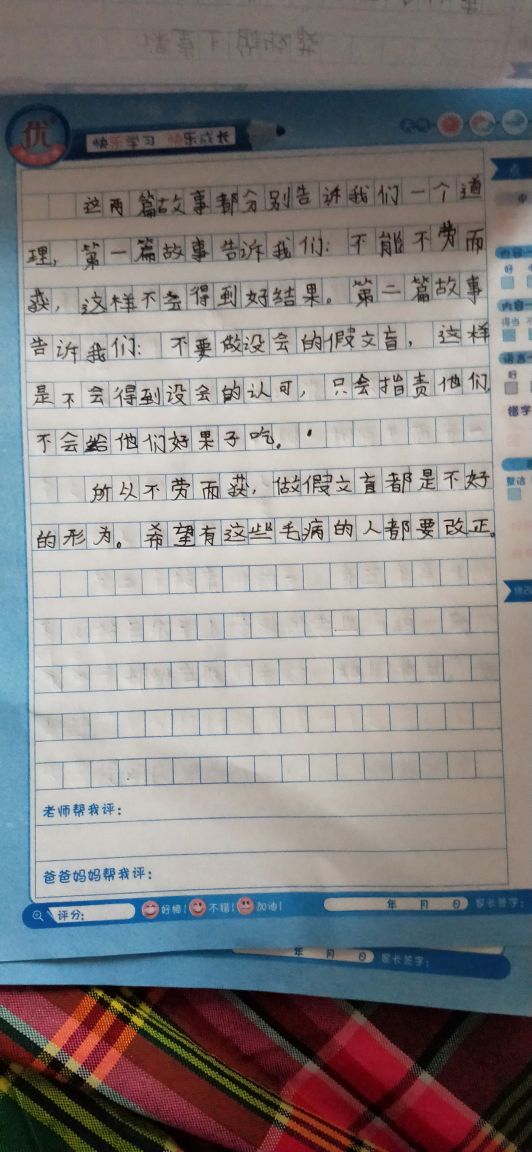 优
快乐学习 快乐成长
这两篇故事都分别告诉我们一个道
理，第一篇故事告诉我们：不能不劳而
获，这样不会得到好结果。第二篇故事
告诉我们：不要做没会的假文盲，这样
是不会得到没会的认可，只会指责他们，
不会给他们好果子吃。
所以不劳而获，做假文盲都是不好
的形为。希望有这些毛病的人都要改正。
老师帮我评：
爸爸妈妈帮我评：
评分： 好棒！ 不错！ 加油！ 年 月 日 家长签字：
年 月 日 家长签字：
点
内容
好
内容
得当
语言
好
错字
整洁
修改